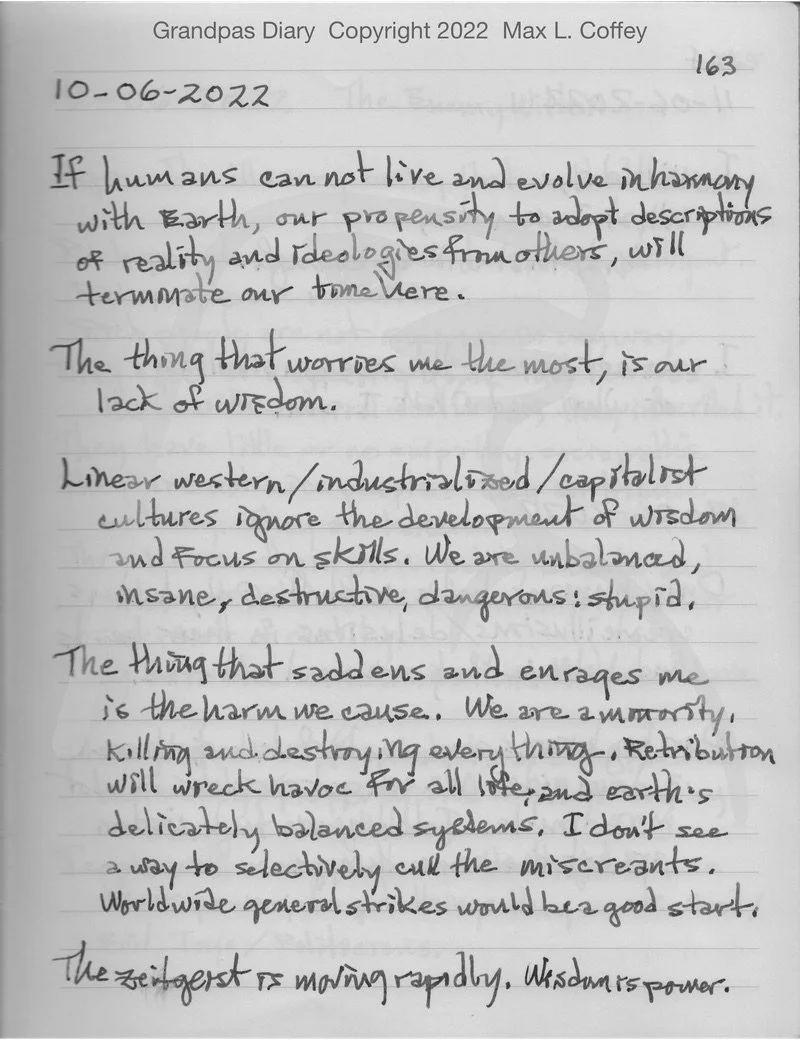 Grandpas Diary Copyright 2022 Max L. Coffey
163
10-06-2022
If humans can not live and evolve in harmony
with Earth, our propensity to adopt descriptions
of reality and ideologies from others, will
terminate our time here.
The thing that worries me the most, is our
lack of wisdom.
Linear western/industrialized/capitalist
cultures ignore the development of wisdom
and focus on skills. We are unbalanced,
insane, destructive, dangerous: stupid.
The thing that saddens and enrages me
is the harm we cause. We are a minority,
killing and destroying everything. Retribution
will wreck havoc for all life, and earth's
delicately balanced systems. I don't see
a way to selectively cull the miscreants.
Worldwide general strikes would be a good start.
The zeitgeist is moving rapidly. Wisdom is power.